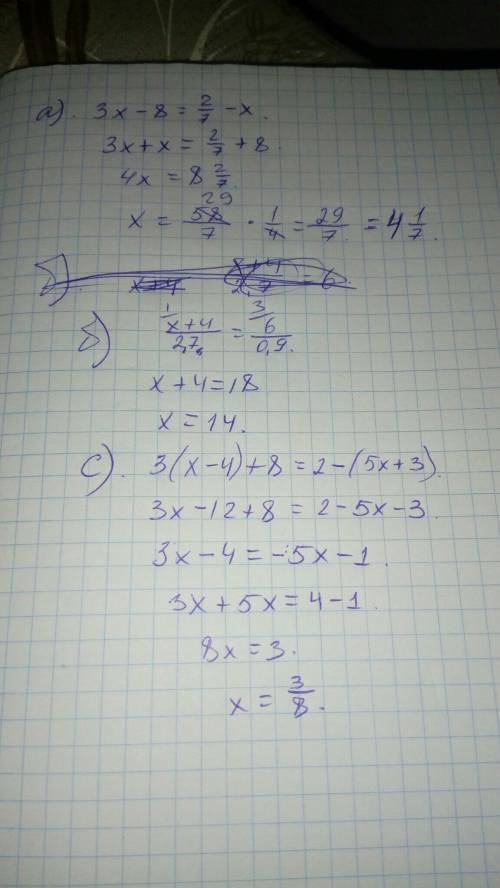 а). 3x - 8 = 2/7 - x.
3x + x = 2/7 + 8.
4x = 8 2/7.
29
x = 58/7 · 1/4 = 29/7 = 4 1/7.
б). x+4 8+4/2,7 = 6.
1 3
б) x+4/2,7 = 6/0,9.
x + 4 = 18
x = 14.
c). 3(x-4)+8 = 2-(5x+3).
3x - 12 + 8 = 2 - 5x - 3.
3x - 4 = -5x - 1.
3x + 5x = 4 - 1.
8x = 3.
x = 3/8.